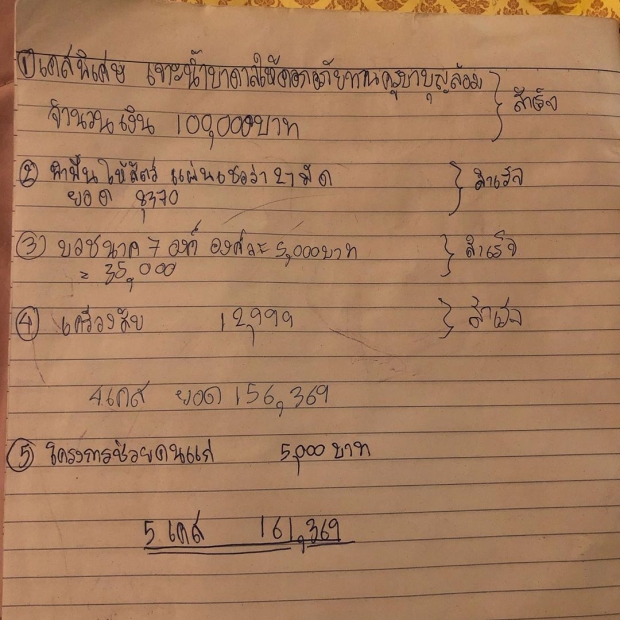 ① เคสพิเศษ เจาะน้ำบาดาลให้คอกอภัยทานครูบาบุญล้อม } สำเร็จ
จำนวนเงิน 100,000บาท
② ทำพื้นให้สัตว์ แผ่น 27 } สำเร็จ
ยอด 8,370
③ บวชนาค 7 องค์ องค์ละ 5,000บาท } สำเร็จ
= 35,000
④ เครื่อง 12,999 } สำเร็จ
4เคส ยอด 156,369
⑤ โครงการช่วยคนแก่ 5,000 บาท
5 เคส 161,369